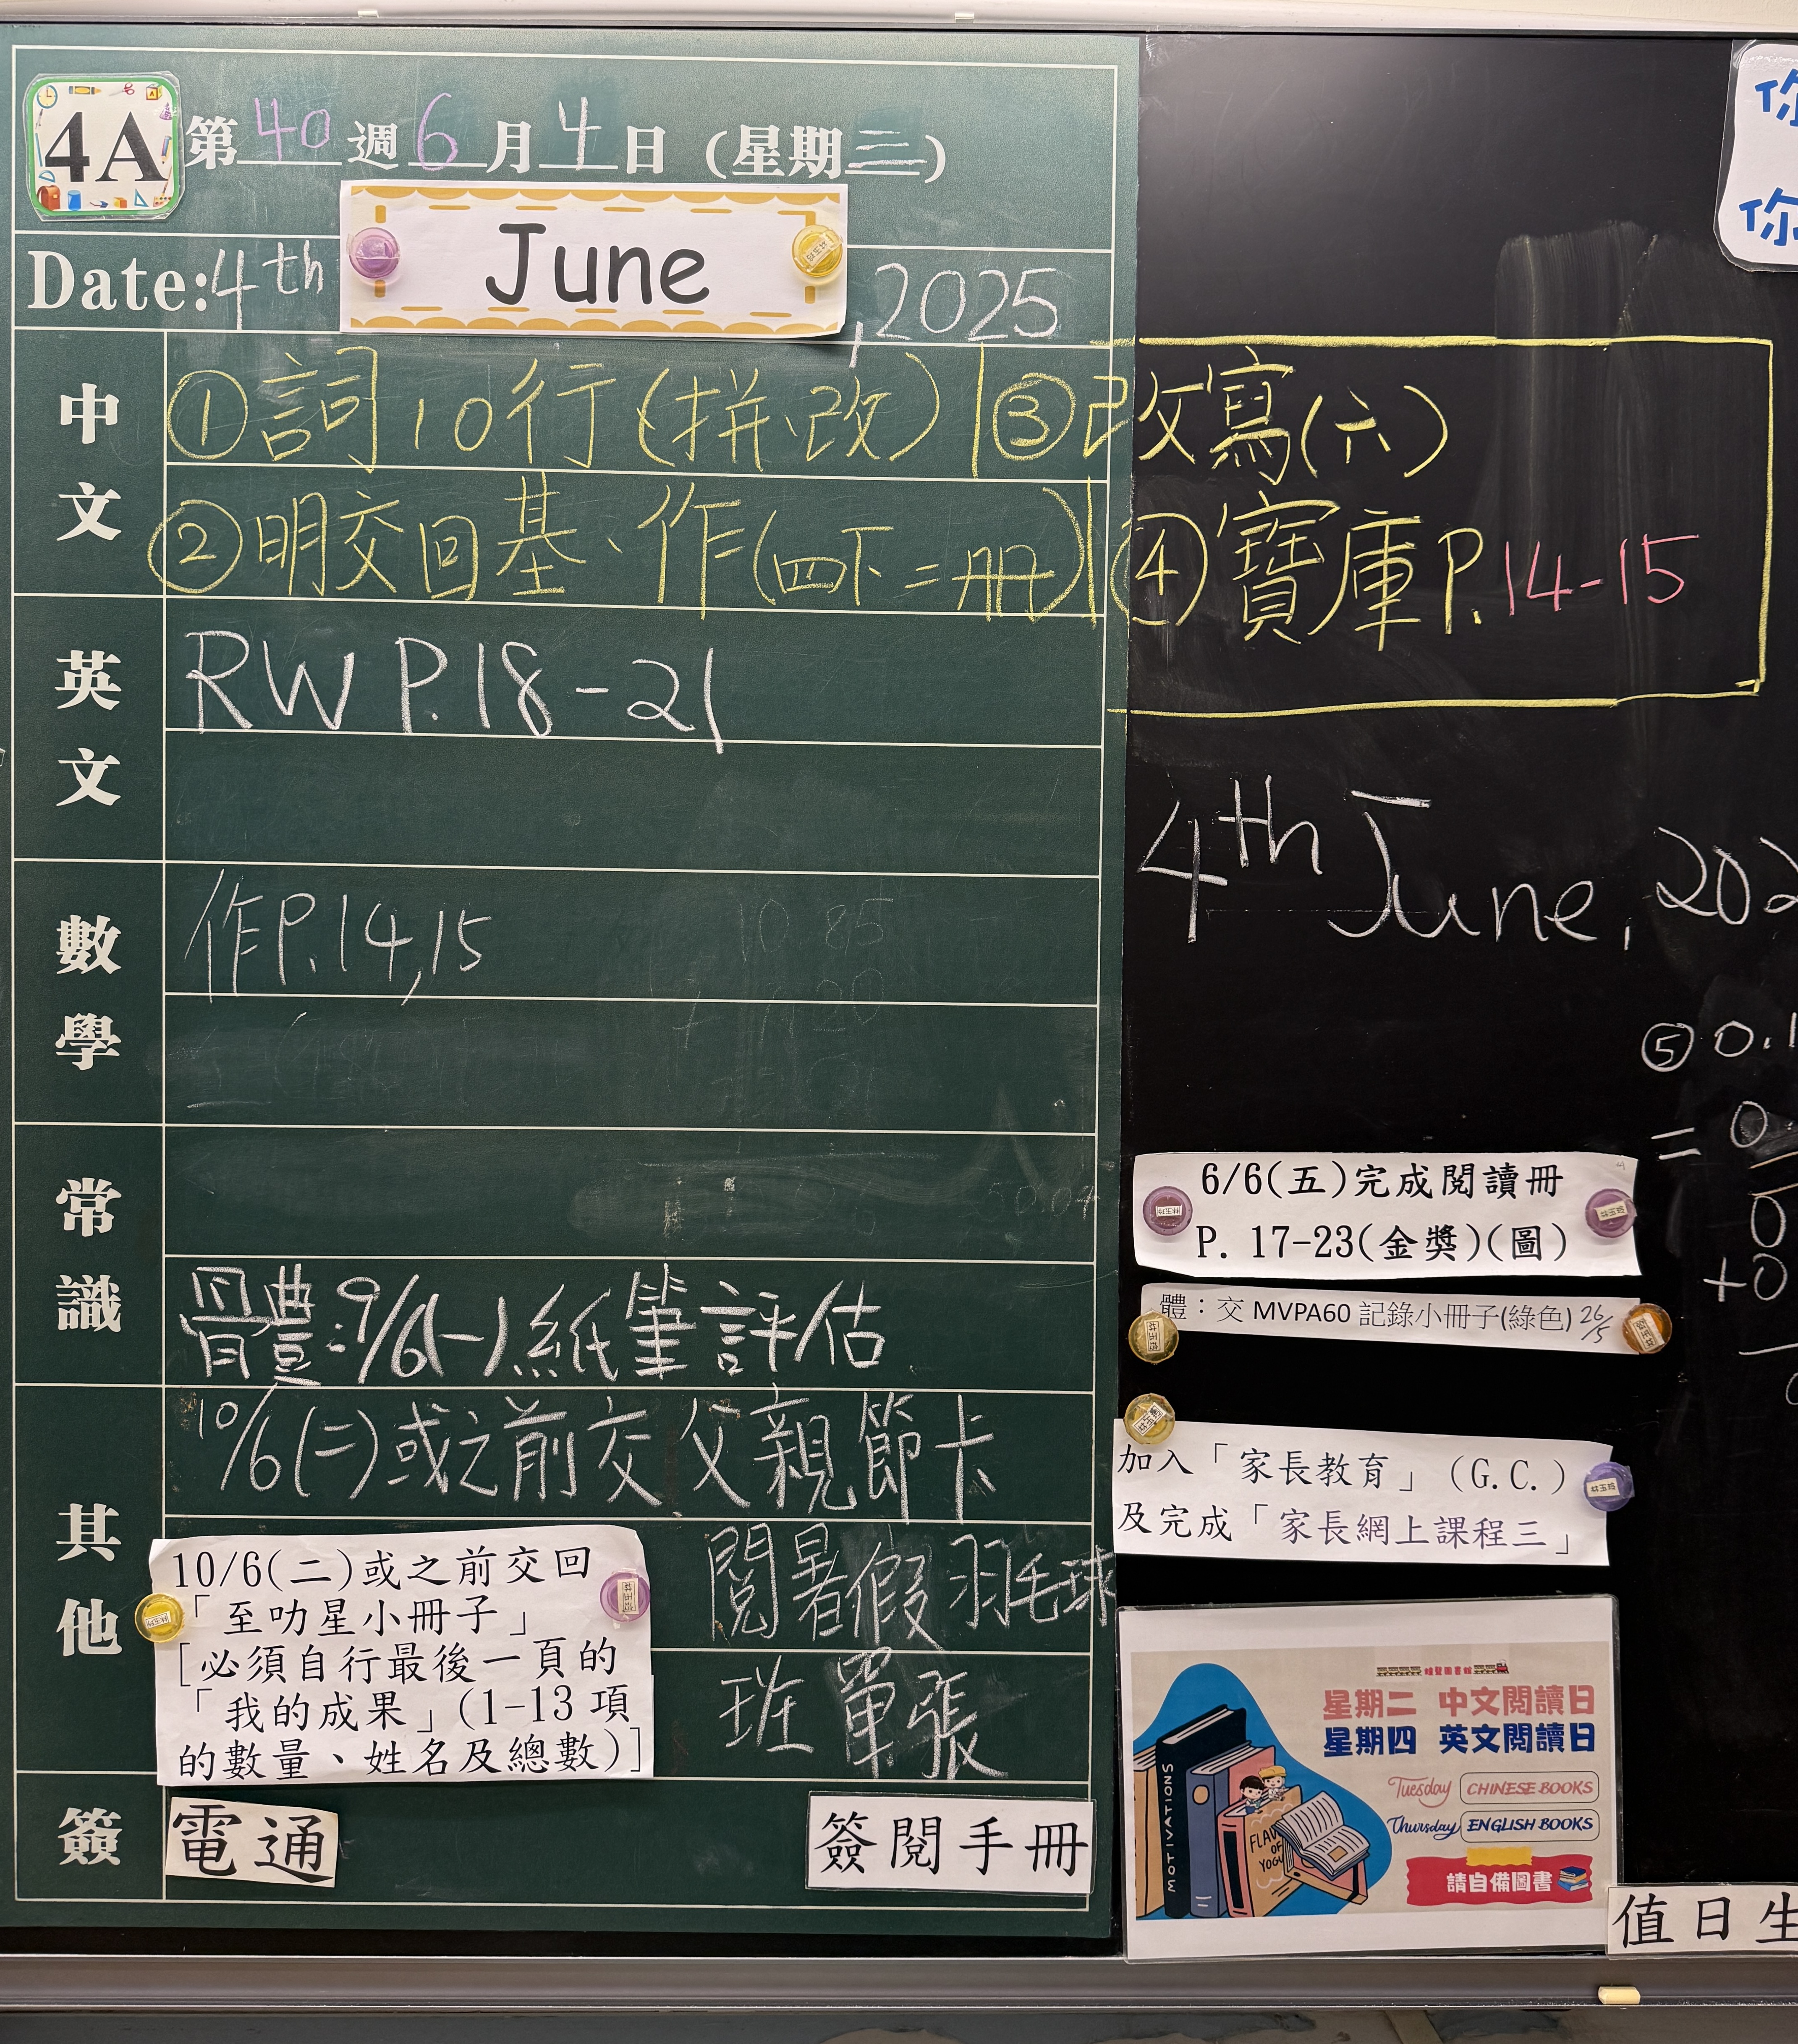 4A 第 40 週 6 月 4 日 (星期三)
Date: 4th June, 2025
中文
① 詞10行(拼、改) ③ 改寫(六)
② 明交回基、作(四下二册) ④ 寶庫P.14-15
英文
RW P.18-21
數學
作P.14,15
常識
體:9/6(一)紙筆評估
其他
10/6(二)或之前交父親節卡
10/6(二)或之前交回
「至叻星小冊子」
[必須自行最後一頁的
「我的成果」(1-13項
的數量、姓名及總數)]
閱暑假羽毛球
班單張
簽
電通
簽閱手冊
你
你
4th June, 202
⑤ 0.1
= 0.
0
+0
6/6(五)完成閱讀冊
P. 17-23(金獎)(圖)
體:交 MVPA60 記錄小冊子(綠色) 26/5
加入「家長教育」(G.C.)
及完成「家長網上課程三」
星期二 中文閱讀日
星期四 英文閱讀日
Tuesday CHINESE BOOKS
Thursday ENGLISH BOOKS
請自備圖書
MOTIVATIONS
值日生